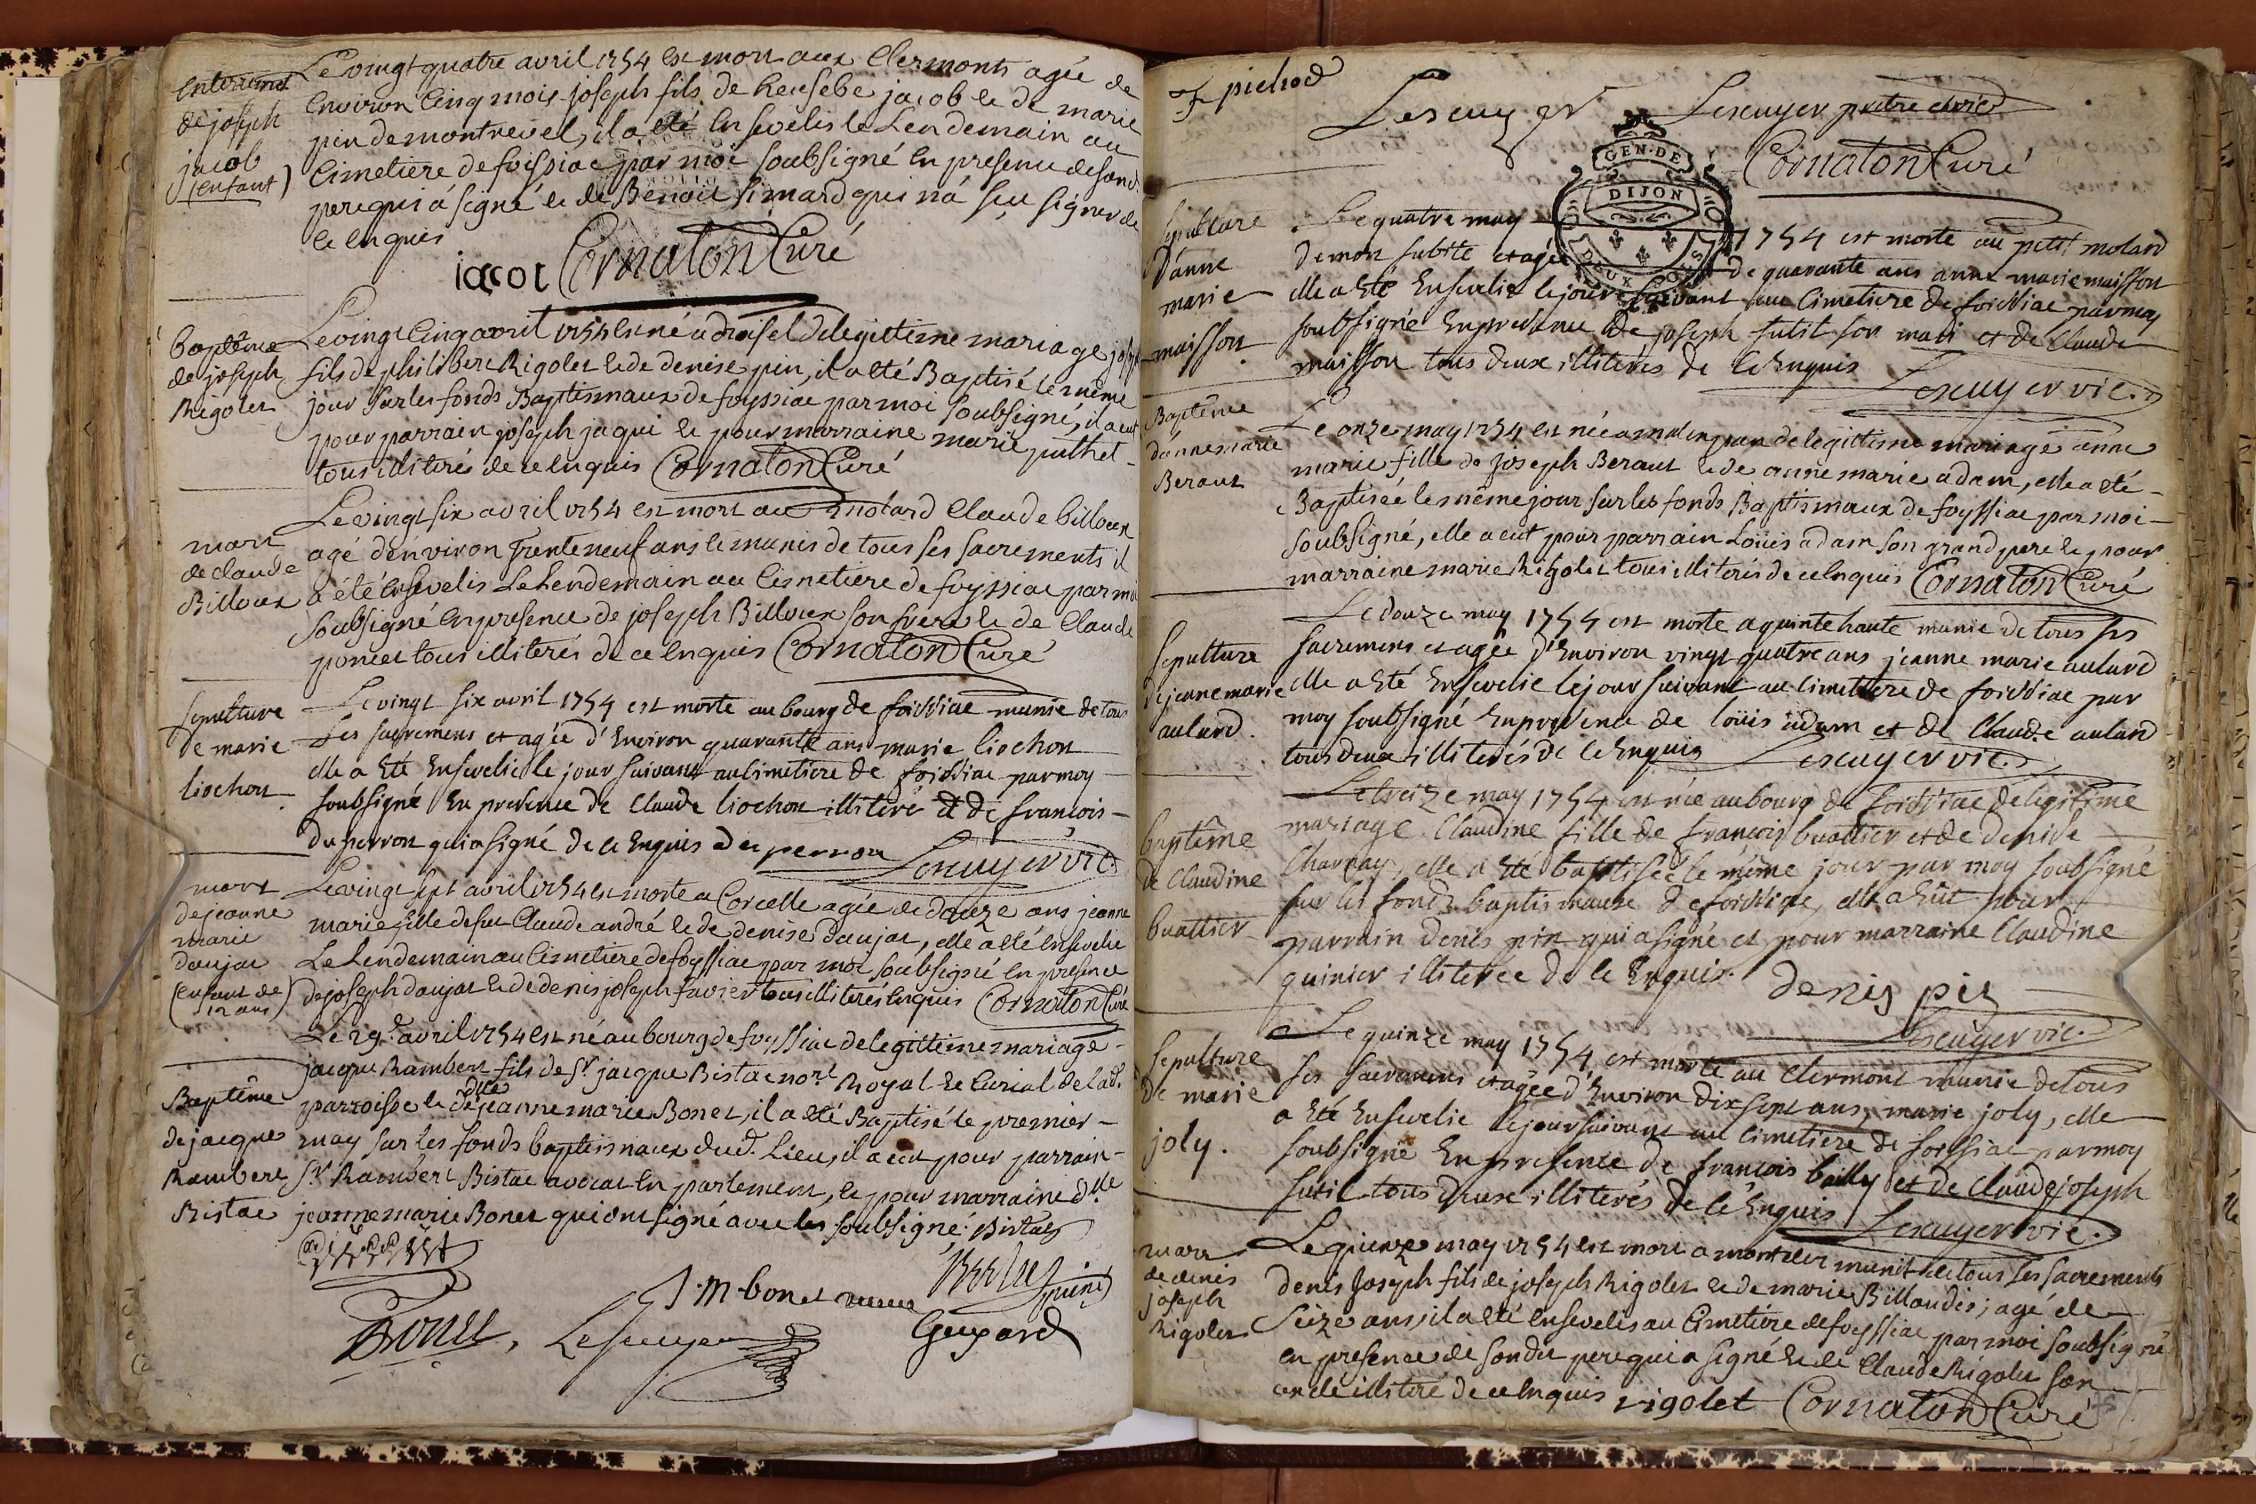 Enterrement
de joseph
jacob
(Enfant)
Le vingt quatre avril 1754 est mort aux Clermonts agée de
Environ Cinq mois joseph fils de heusebe jacob et de marie
pin de montrevel, il a eté Ensevelis le Lendemain au
Cimetiere de foissiac par moi soubsigné En presence de sond.
pere qui a signé et de Benoit Simard qui n'a sçu signer de
ce Enquis
iacot Cornaton Curé
baptême
de joseph
Rigolet
Le vingt Cinq avril 1754 est né a de legittime mariage joseph
fils de philibert Rigolet et de denise pin, il a eté Baptisé le même
jour sur les fonds Baptismaux de foyssiac par moi soubsigné, il a eut
pour parrain joseph jaqui et pour marraine marie puthet
tous illiterés de ce Enquis Cornaton Curé
mort
de Claude
Billoux
Le vingt six avril 1754 est mort au molard Claude billoux
agé d'environ trente neuf ans et munis de tous ses sacrements il
a été Ensevelis Le Lendemain au Cimetiere de foyssiac par moi
soubsigné En presence de joseph Billoux son frere et de Claude
poncet tous illiterés de ce Enquis Cornaton Curé
sepulture
de marie
liochon
Le vingt six avril 1754 est morte au bourg de foissiac munie de tous
Ses sacremens et agée d'Environ quarante ans marie liochon
elle a Eté Ensevelie le jour suivant au cimetiere de foissiac par moy
soubsigné En presence de Claude liochon illiteré et de françois
duperron qui a signé de ce Enquis duperron Lescuyer vic.
mort
de jeanne
marie
daujat
(enfant de
12 ans)
Le vingt sept avril 1754 est morte a Corcelle agée de douze ans jeanne
marie fille de feu Claude andré et de denise daujat, elle a eté Ensevelie
Le Lendemain au Cimetiere de foyssiac par moi soubsigné En presence
de joseph daujat et de denis joseph favier tous illiterés Enquis Cornaton Curé
Baptême
de jacque
Rambert
Bistac
Le 29e avril 1754 est né au bourg de foyssiac de legittime mariage
jacque Rambert fils de Sr jacque Bistac nore Royal et Curial de lad.
parroisse et de dlle jeanne marie Bonet, il a eté Baptisé le premier
may sur les fonds baptismaux dud. Lieu, il a eut pour parrain
Sr Rambert Bistac avocat En parlement, et pour marraine dlle
jeanne marie Bonet qui ont signé avec les soubsigné Bistac
J. M. bonet
Bonet, Lescuyer Guyard
F pichod
Lescuyer Lescuyer pretre et vic.
Cornaton Curé
GEN. DE
DIJON
DEUX SOLS
sepulture
D'anne
marie
maisson
Le quatre may 1754 est morte au petit molard
de mort subite et agée de quarante ans anne marie maisson
elle a Eté Ensevelie le jour suivant au Cimetiere de foissiac par moy
soubsigné En presence de joseph futil son mari et de Claude
maisson tous deux illiterés de ce Enquis
Lescuyer vic.
Baptême
d'anne marie
Beraut
Le onze may 1754 est née a de legittime mariage anne
marie fille de Joseph Beraut et de anne marie adam, elle a eté
Baptisée le même jour sur les fonds Baptismaux de foyssiac par moi
soubsigné, elle a eut pour parrain Loüis adam son grand pere et pour
marraine marie Rigolet tous illiterés de ce Enquis Cornaton Curé
Sepulture
de jeanne marie
aulard.
Le douze may 1754 est morte a quinte haute munie de tous ses
sacremens et agée d'Environ vingt quatre ans jeanne marie aulard
elle a Eté Ensevelie le jour suivant au cimetiere de foissiac par
moy soubsigné En presence de loüis adam et de Claude aulard
tous deux illiterés de ce Enquis Lescuyer vic.
baptême
de Claudine
buattier
Le treize may 1754 est née au bourg de foissiac de legitime
mariage Claudine fille de françois buattier et de denise
Charnay, elle a Eté baptisée le même jour par moy soubsigné
sur les fonds baptismaux de foissiac, elle a Eüt pour
parrain denis pin qui a signé et pour marraine Claudine
quinier illiterée de ce Enquis.
denis pin
Lescuyer vic.
Sepulture
de marie
joly.
Le quinze may 1754 est morte au clermont munie de tous
Ses sacremens et agée d'Environ dix sept ans, marie joly, elle
a Eté Ensevelie le jour suivant au cimetiere de foissiac par moy
soubsigné En presence de françois bailly et de Claude joseph
futil tous deux illiterés de ce Enquis Lescuyer vic.
mort
de denis
joseph
Rigolet
Le quinze may 1754 est mort a munit de tous ses sacrements
denis Joseph fils de joseph Rigolet et de marie Billaudis; agé de
Seize ans, il a eté Ensevelis au Cimetiere de foyssiac par moi soubsigné
en presence de sondit pere qui a signé et de Claude Rigolet son
oncle illiteré de ce Enquis rigolet Cornaton Curé